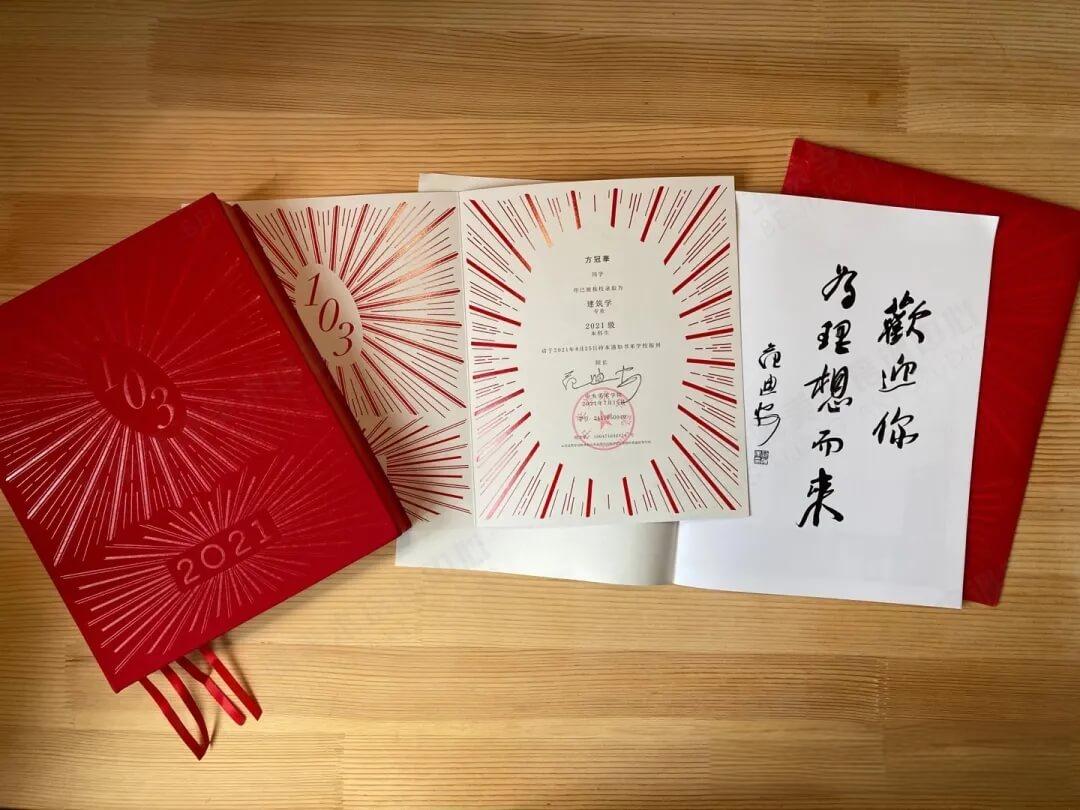 103
2021
103
方冠華
同学
你已被我校录取为
建筑学
专业
2021 级
本科生
请于2021年8月25日持本通知书来学校报到
院长
范迪安
中央美术学院
歡迎你
为理想而来
范迪安